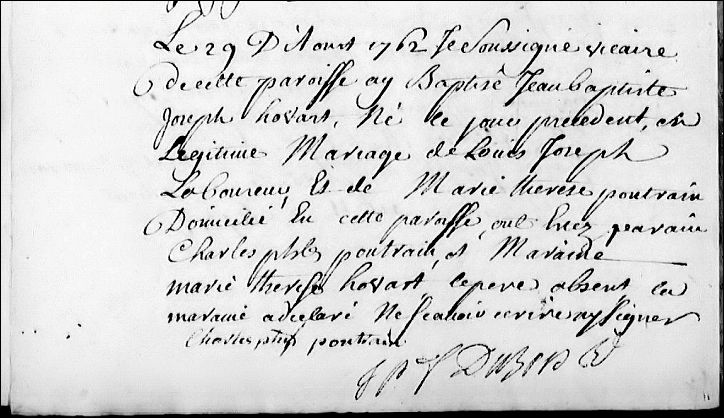 Le 29 D'Aoust 1762 Je Soussigné vicaire
de cette paroisse ay Baptisé Jean baptiste
Joseph hovart, Né le jour precedent, en
Legitime Mariage de Louis Joseph
Laboureur, Et de Marie therese poutrain
Domicilié En cette paroisse, ont Etez, parain
Charles phle poutrain, et Maraine
marie therese hovart, le pere absent la
maraine a declaré Ne scavoir ecrire ny signer
Charles phle poutrain